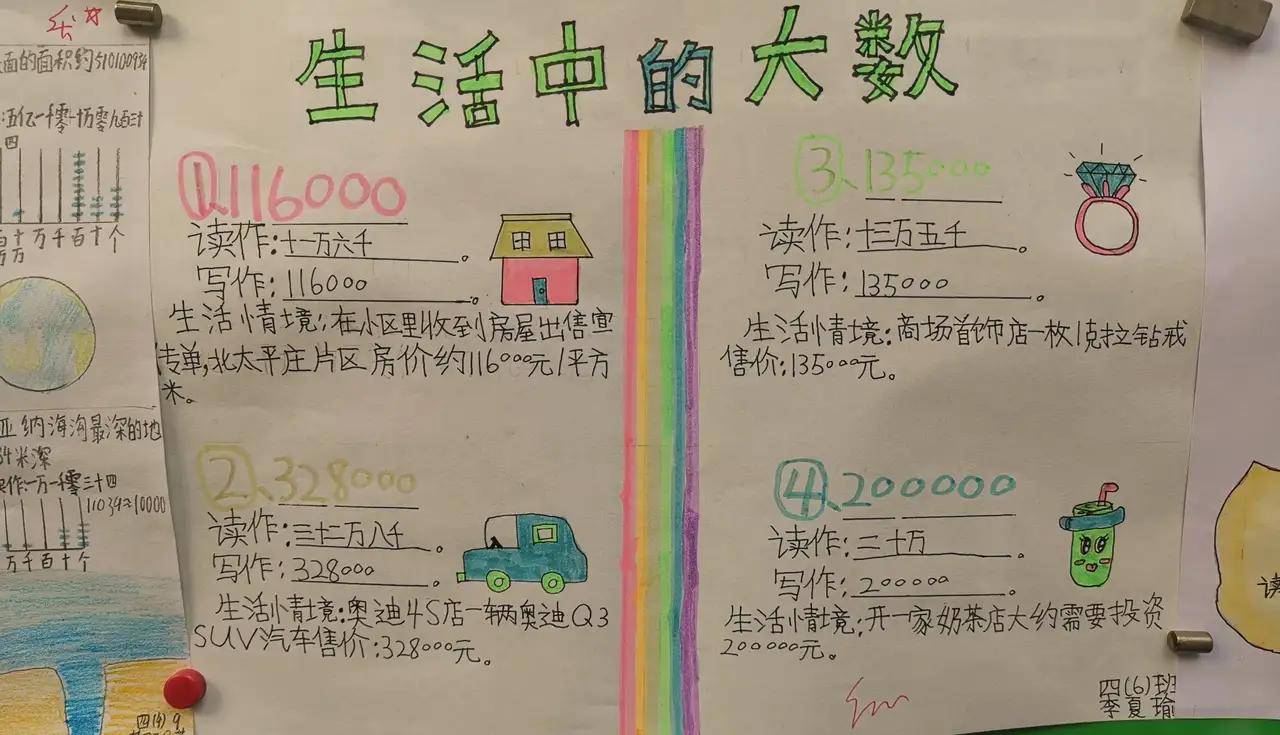 生活中的大数
①、116000
读作:十一万六千。
写作:116000。
生活情境:在小区里收到房屋出售宣
传单,北太平庄片区房价约116000元/平方
米。
②、328000
读作:三十二万八千。
写作:328000。
生活情境:奥迪4S店一辆奥迪Q3
SUV汽车售价:328000元。
③、135000
读作:十三万五千。
写作:135000。
生活情境:商场首饰店一枚1克拉钻戒
售价:135000元。
④、200000
读作:二十万。
写作:200000。
生活情境:开一家奶茶店大约需要投资
200000元。
四(6)班
李夏瑜
面的面积约510100934
五亿一千零一十万零九百三十
四
百十万千百十个
万万
亚纳海沟最深的地
34米深
作:一万一千零三十四
11034≈10000
万千百十个
读